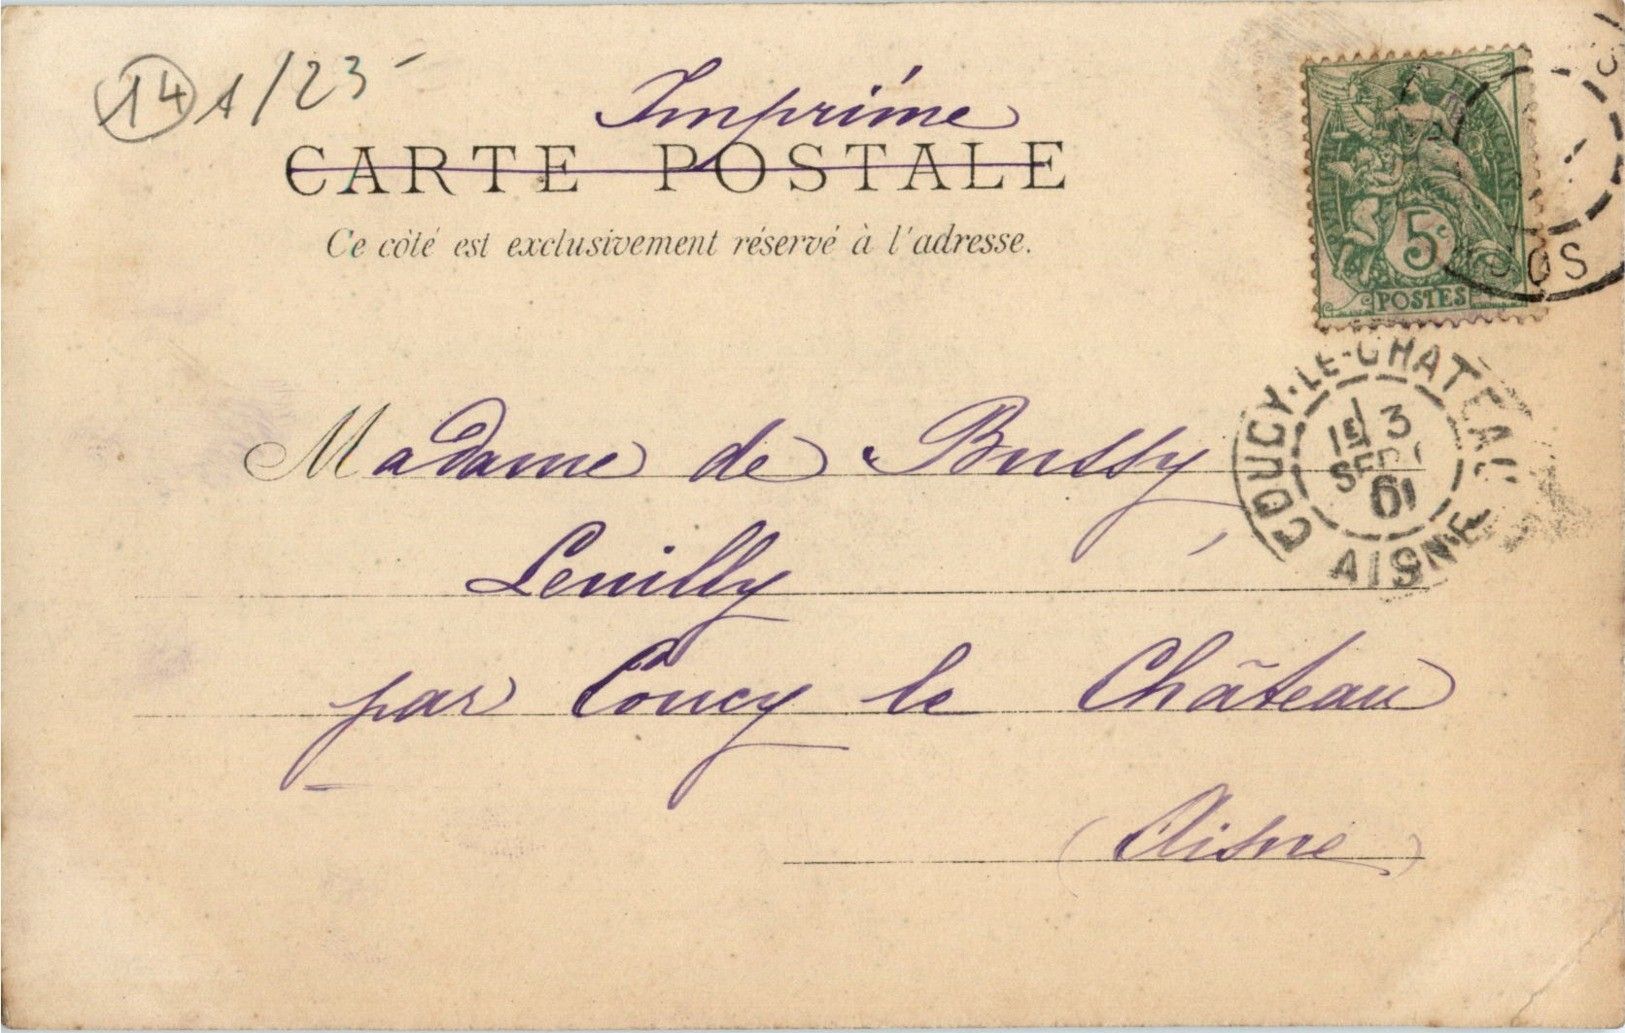 14 A/23
Imprimé
CARTE POSTALE
Ce côté est exclusivement réservé à l'adresse.
5c
POSTES
COUCY-LE-CHATEAU
13
SEPT
01
AISNE
Madame de Bussy,
Leuilly
par Coucy le Château
(Aisne)